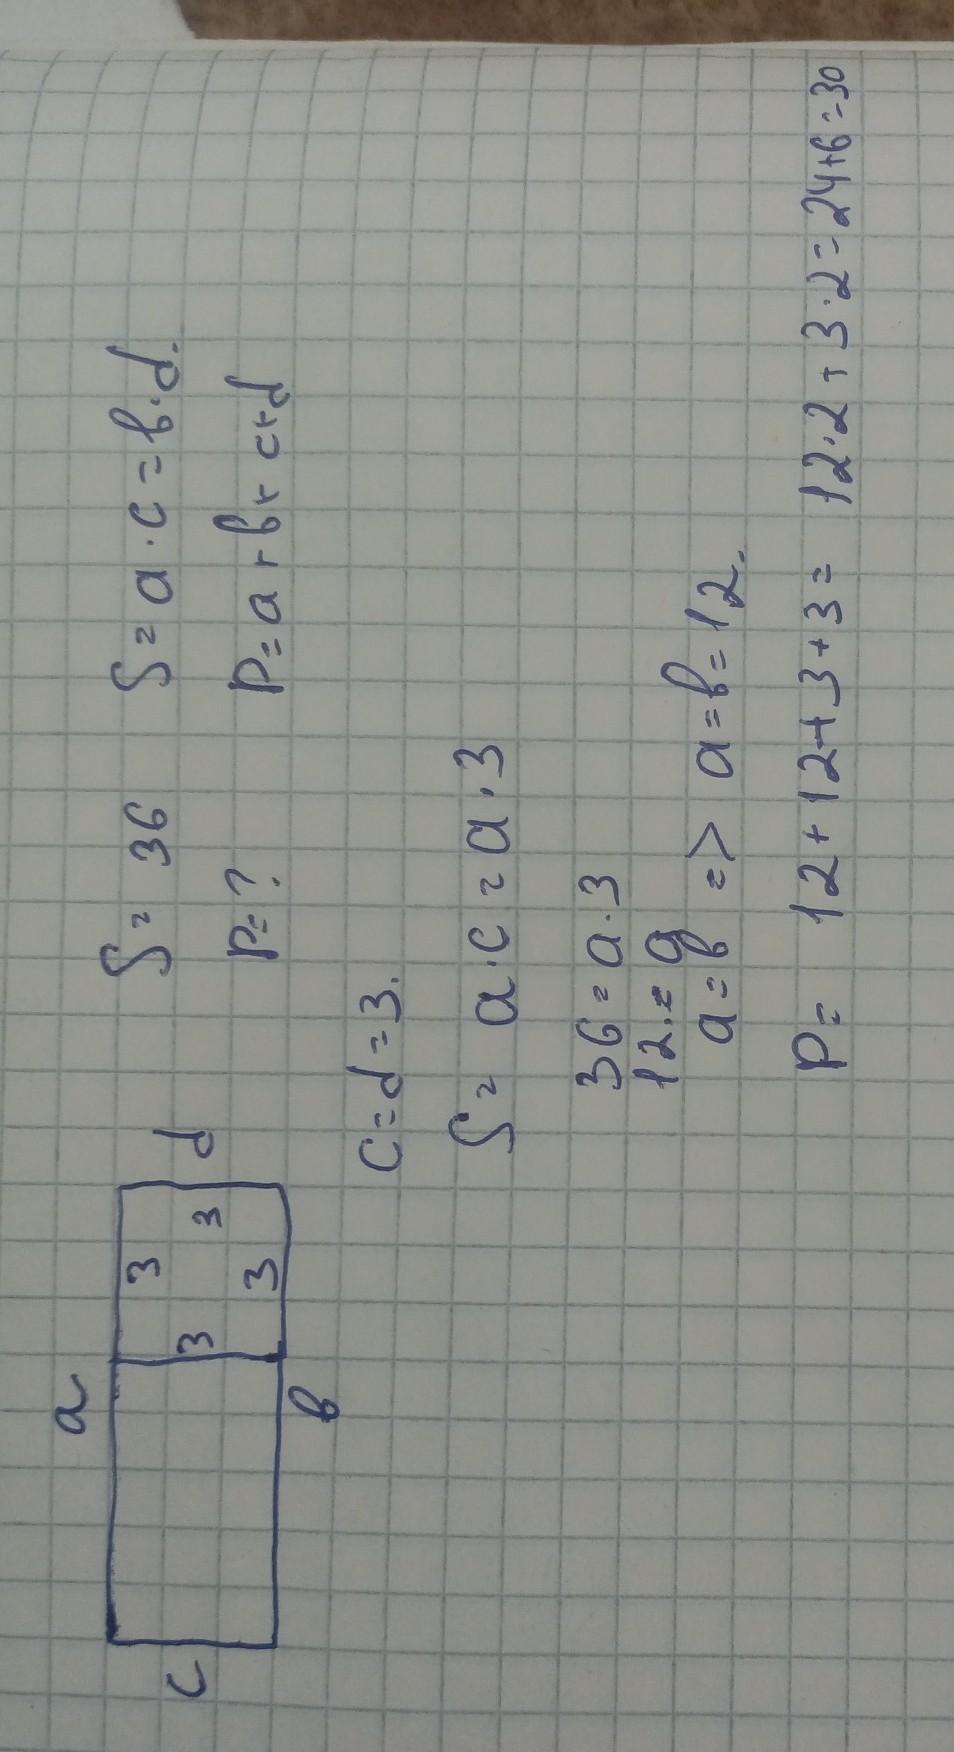 a
c
d
в
3
3
3
3
S= 36
S= a·c=в·d.
P=?
P=a+в+c+d
c=d=3.
S= a·c=a·3
36=a·3
12.=a
a=в => a=в=12.
P= 12+12+3+3= 12·2+3·2=24+6=30